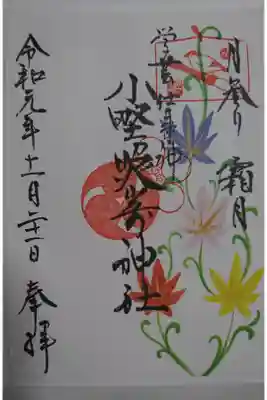 月参り 霜月
学芸仕事神
小野照崎神社
令和元年十一月二十一日 奉拝